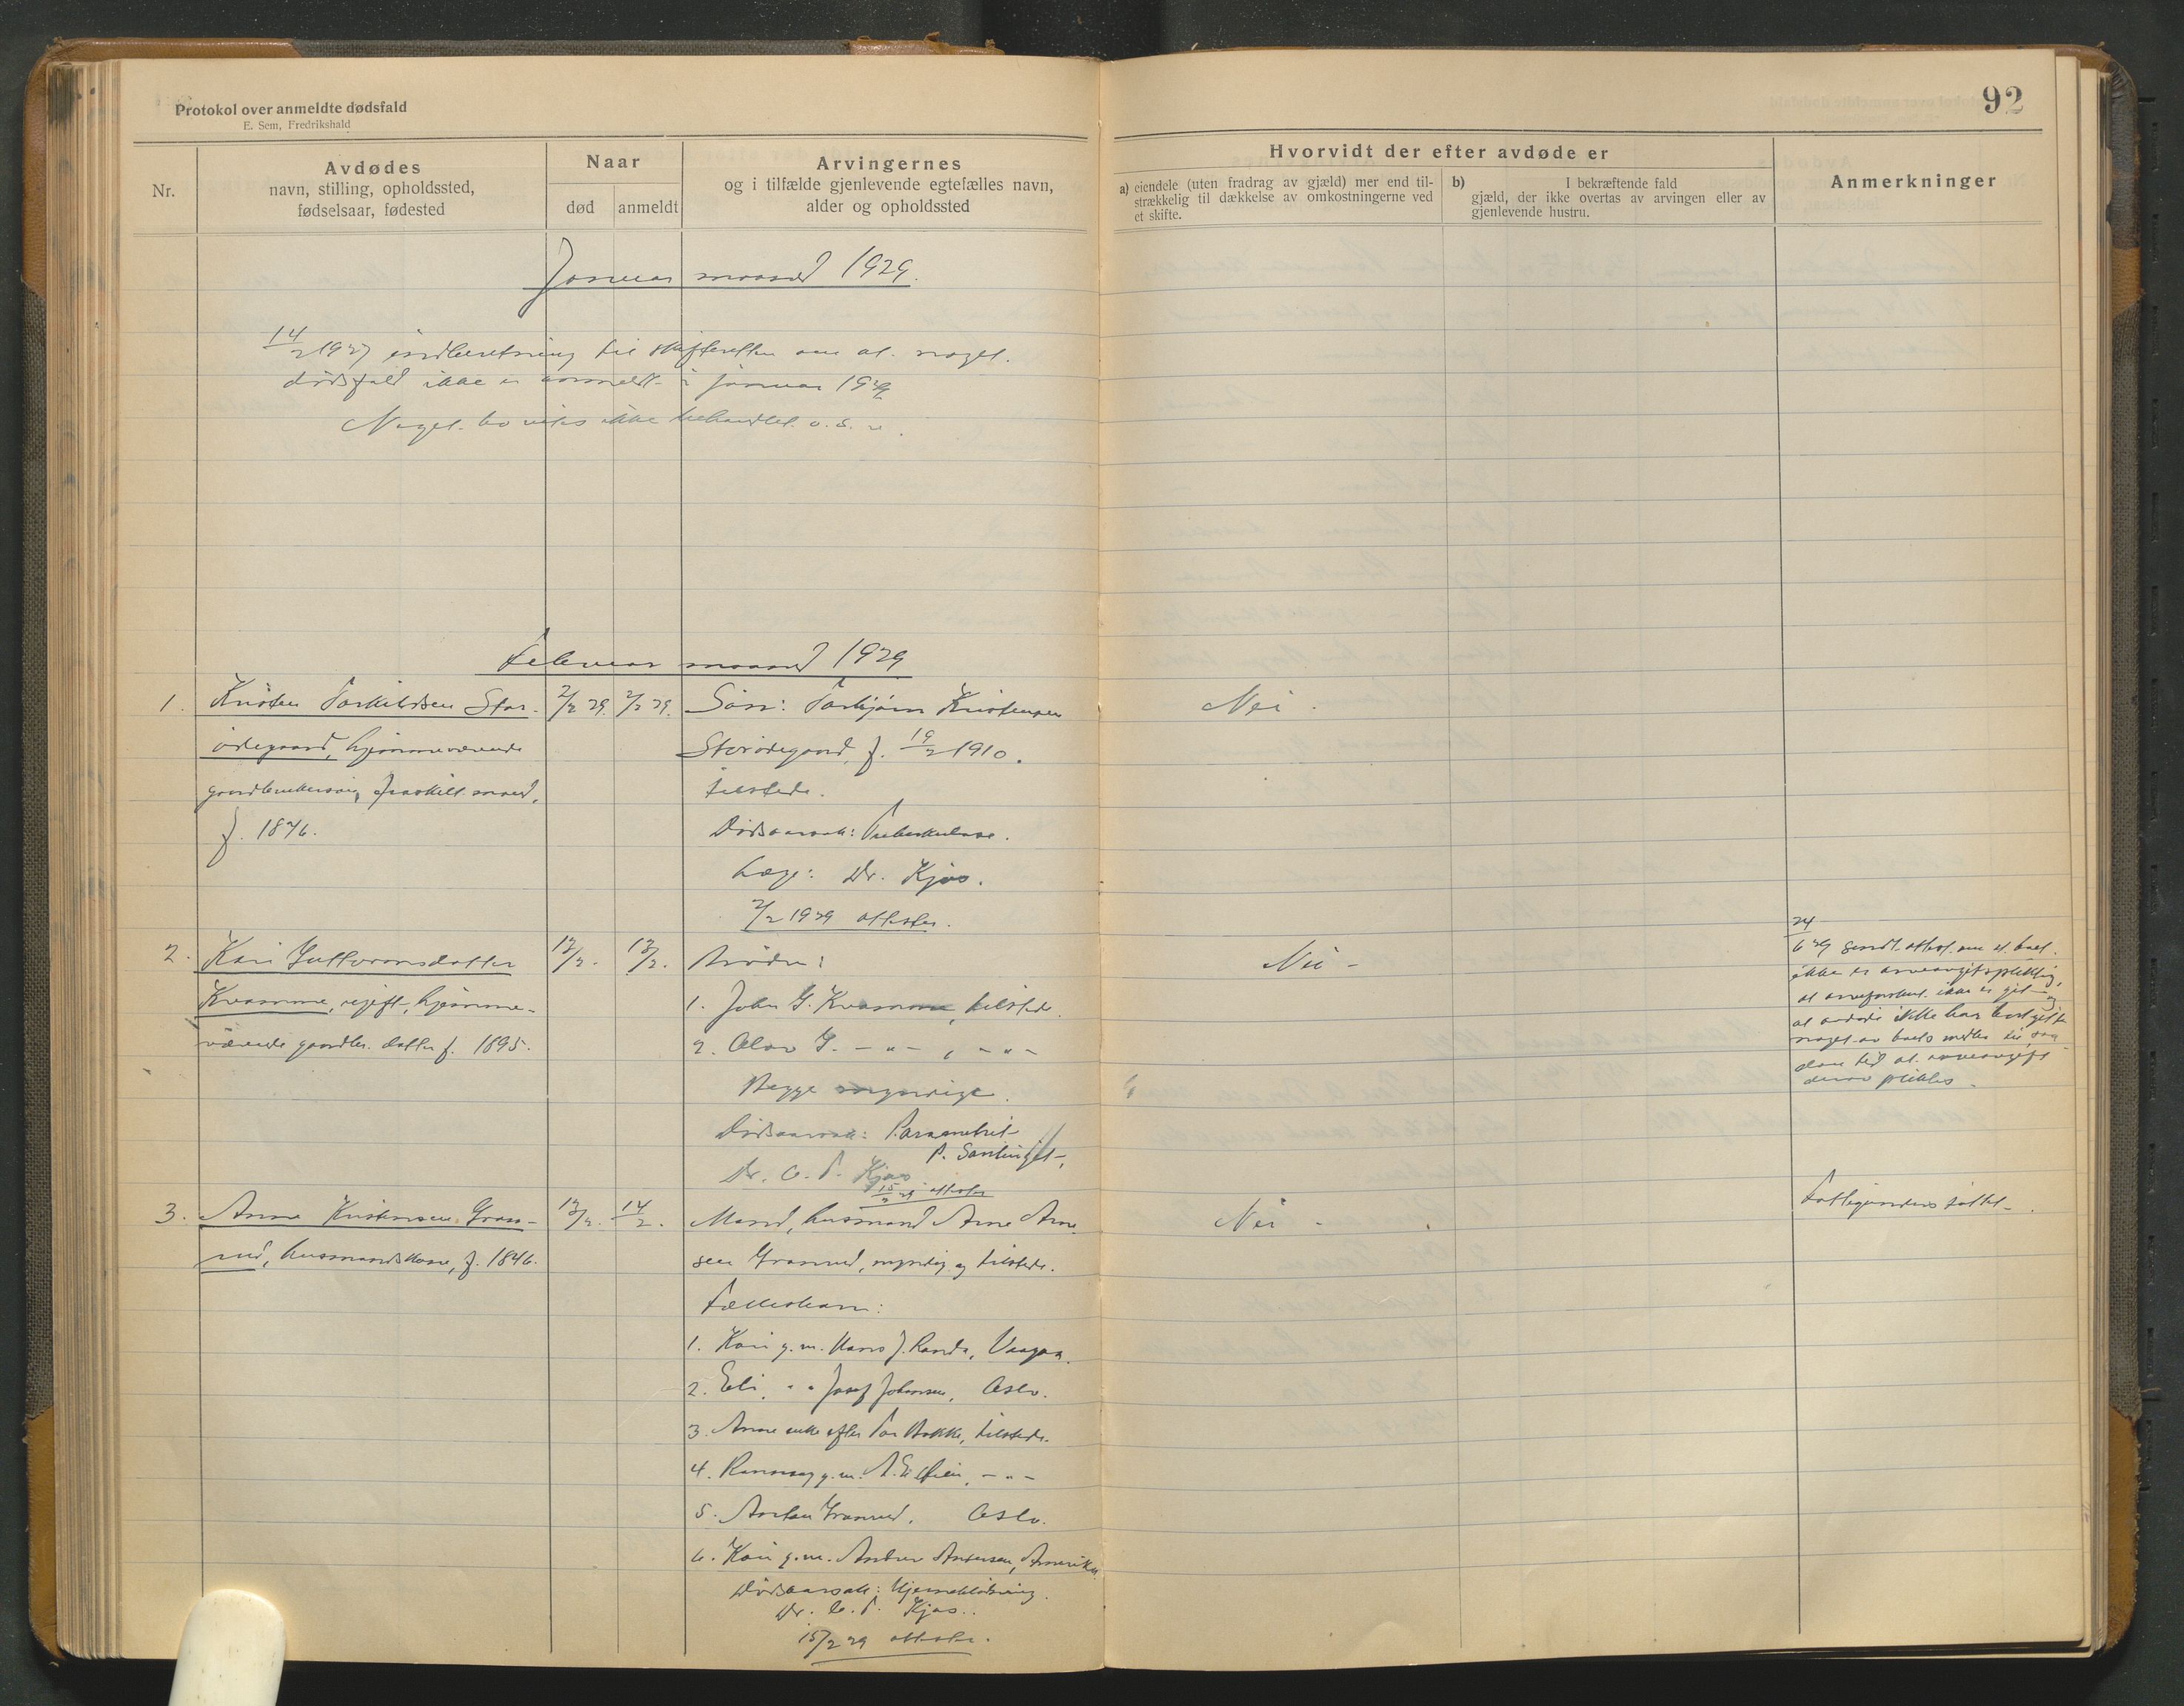 Protokol over anmeldte dødsfald
E. Sem, Fredrikshald
92
Nr.
Avdødes
navn, stilling, opholdssted,
fødselsaar, fødested
Naar
død
anmeldt
Arvingernes
og i tilfælde gjenlevende egtefælles navn,
alder og opholdssted
Hvorvidt der efter avdøde er
a) eiendele (uten fradrag av gjæld) mer end til-
strækkelig til dækkelse av omkostningerne ved
et skifte.
b) I bekræftende fald
gjæld, der ikke overtas av arvingen eller av
gjenlevende hustru.
Anmerkninger
Januar maaned 1929.
14/2 1929 indberetning til skifteretten om at noget
dødsfald ikke er anmeldt i januar 1929
Noget bo ikke behandlet o.s.v.
Februar maaned 1929
1.
Kristen Torkildsen Stor-
ødegaard, hjemmeværende
gaardbrukersøn, fraskilt mand,
f. 1876.
2/2 29.
2/2 29.
Søn: Torbjørn Kristensen
Storødegaard, f. 19/2 1910.
tilstede.
Dødsaarsak: Tuberkulose.
Læge: Dr. Kjos.
2/2 1929 attester.
Nei.
2.
Kari Guttormsdatter
Kvamme, ugift, hjemme-
værende gaardbr. datter f. 1895.
12/2.
13/2.
Brødre:
1. John G. Kvamme, tilstede.
2. Olav G. - " - , - " -
Begge myndige.
Dødsaarsak: Parametrit
Dr. O. T. Kjos
15/2 29 attester
Nei -
24/6 29 sendt attest om at boet
ikke er arveavgiftspliktig,
at arveforskud ikke er git og
at avdøde ikke har bortgitt
noget av boets midler til
den tid at arveavgift
derav pliktes.
3.
Anne Kristensen Gran-
rud, husmandskone, f. 1846.
12/2.
14/2.
Mand, husmand Arne Arne-
sen Granrud, myndig og tilstede.
Fællesbarn:
1. Kari g.m. Hans J. Randa, Vaagaa.
2. Eli, " " Josef Johansen, Oslo.
3. Anne enke efter Tor Bakke, tilstede.
4. Rannveg g.m. - " -
5. Granrud, Oslo.
6. Kari g.m. Andrew Andersen, Amerika
Dødsaarsak: Hjerneblødning.
Dr. O. T. Kjos.
15/2 29 attester.
Nei -
Fattigunderstøttet.